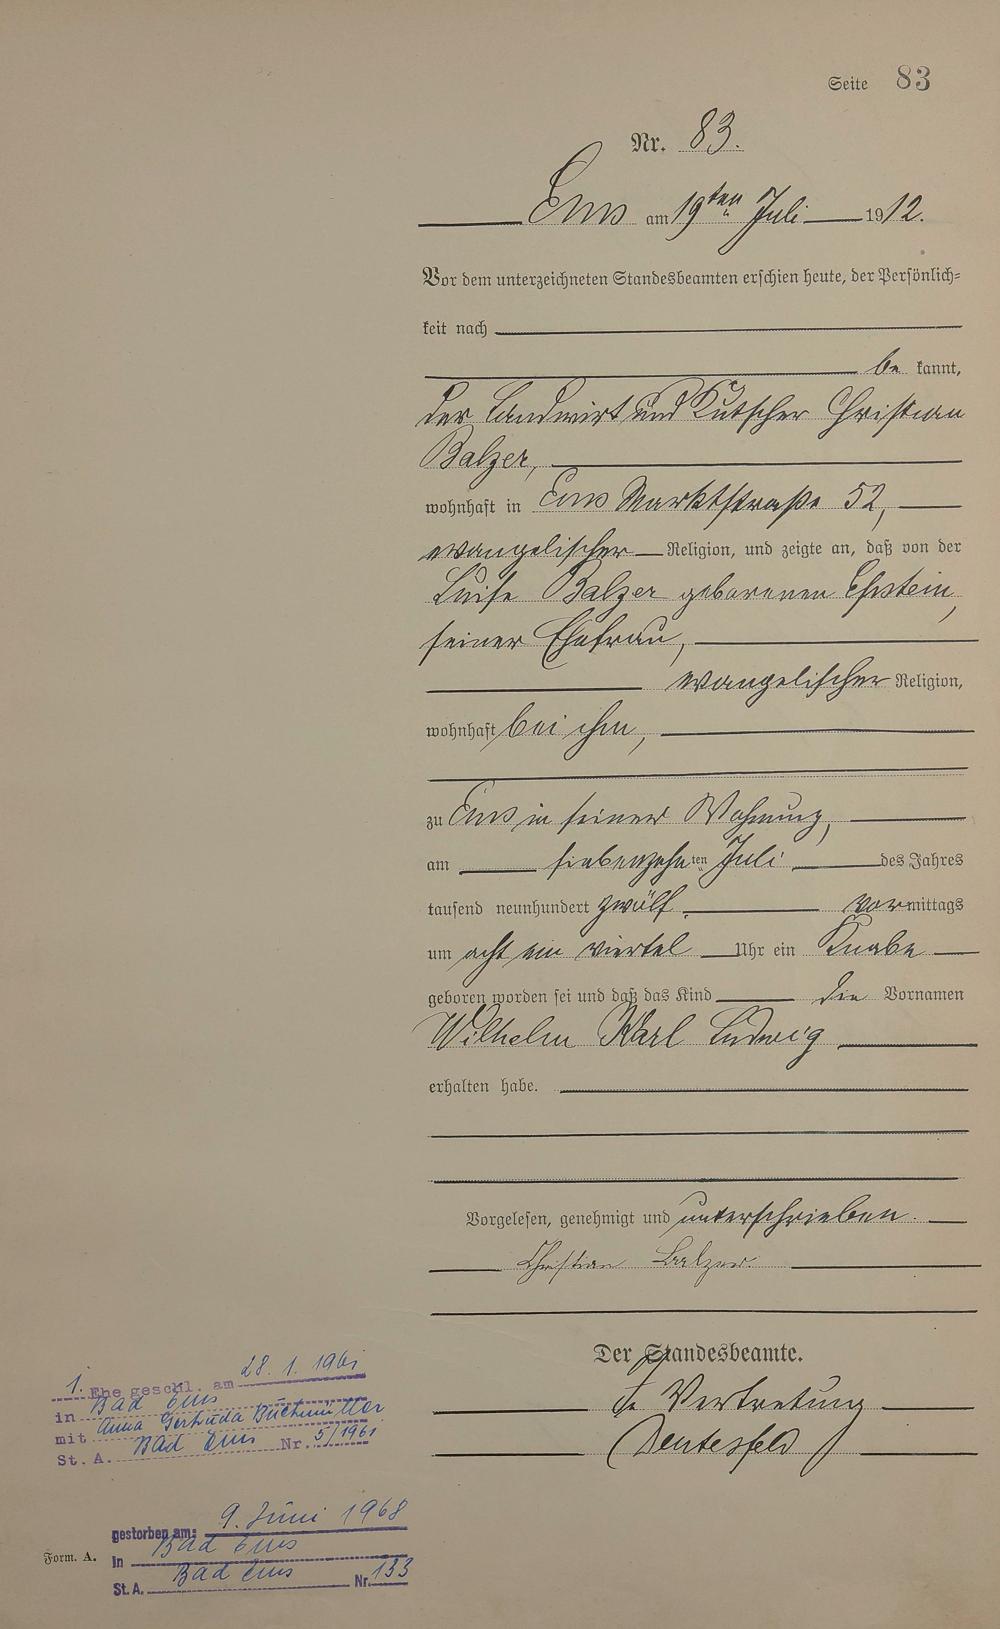 Seite 83
Nr. 83.
Ems am 19ten Juli 1912.
Vor dem unterzeichneten Standesbeamten erschien heute, der Persönlich=
keit nach
be kannt,
der Landwirt und Kutscher Christian
Balzer,
wohnhaft in Ems Marktstraße 52,
evangelischer Religion, und zeigte an, daß von der
Luise Balzer geborenen Epstein,
seiner Ehefrau,
evangelischer Religion,
wohnhaft bei ihm,
zu Ems in seiner Wohnung,
am siebenzehnten Juli des Jahres
tausend neunhundert zwölf vormittags
um acht ein viertel Uhr ein Knabe
geboren worden sei und daß das Kind die Vornamen
Wilhelm Karl Ludwig
erhalten habe.
Vorgelesen, genehmigt und unterschrieben.
Christian Balzer.
Der Standesbeamte.
In Vertretung
1. Ehe geschl. am 28. 1. 1961
in Bad Ems
mit Anna Gertruda
St. A. Bad Ems Nr. 5/1961
gestorben am: 9. Juni 1968
In Bad Ems
St. A. Bad Ems Nr. 133
Form. A.